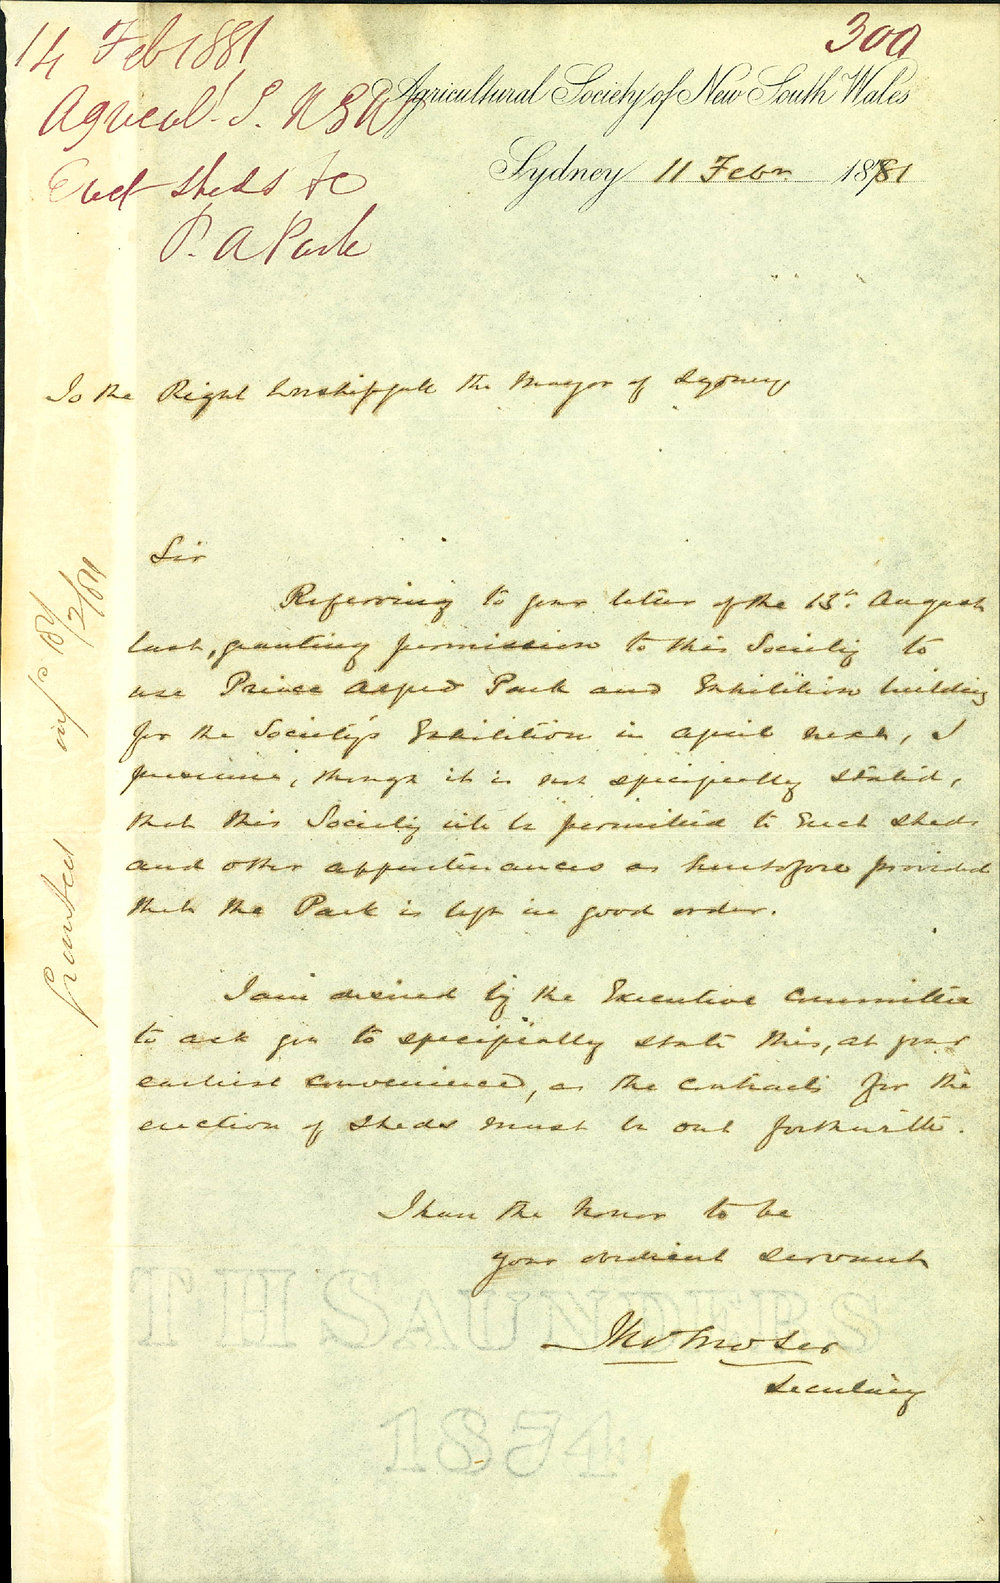 14 Feb 1881
300
Agricul. S. N S W
Erect sheds &c
P. A Park
Agricultural Society of New South Wales
Sydney 11 Febr. 1881
To the Right Worshipfull the Mayor of Sydney
Sir
Referring to your letter of the 13th. August
last, granting permission to this Society to
use Prince Alfred Park and Exhibition building
for the Society's Exhibition in April next, I
presume, though it is not specifically stated,
that this Society will be permitted to Erect sheds
and other appurtenances as heretofore provided
that the Park is left in good order.
I am desired by the Executive Committee
to ask you to specifically state this, at your
earliest convenience, as the contracts for the
erection of sheds must be out forthwith.
I have the honor to be
your obedient servant
Jno Moser
Secretary
granted
T H SAUNDERS
1874